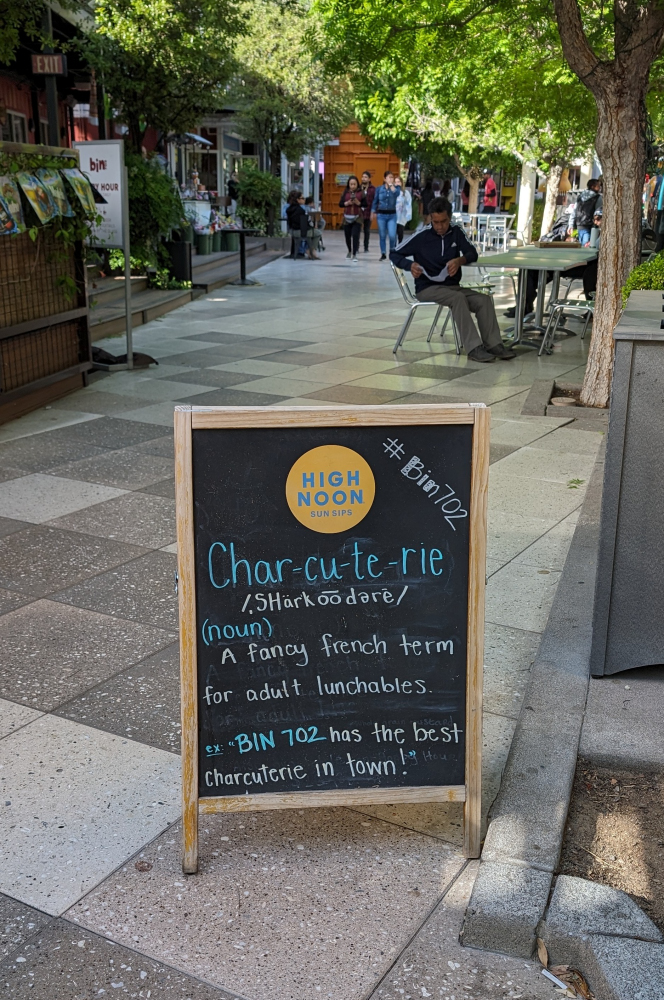 EXIT
bin
Y HOUR
HIGH
NOON
SUN SIPS
#Bin702
Char-cu-te-rie
/.SHärkōōdərē/
(noun)
A fancy french term
for adult lunchables.
ex: "BIN 702 has the best
charcuterie in town!"